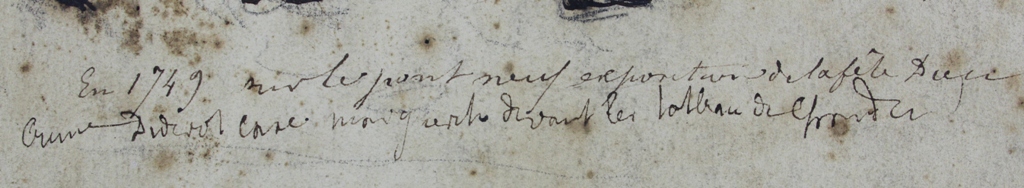 En 1749 sur le pont neuf exposition de la fête Dieu
Diderot devant les tableau de Chardin